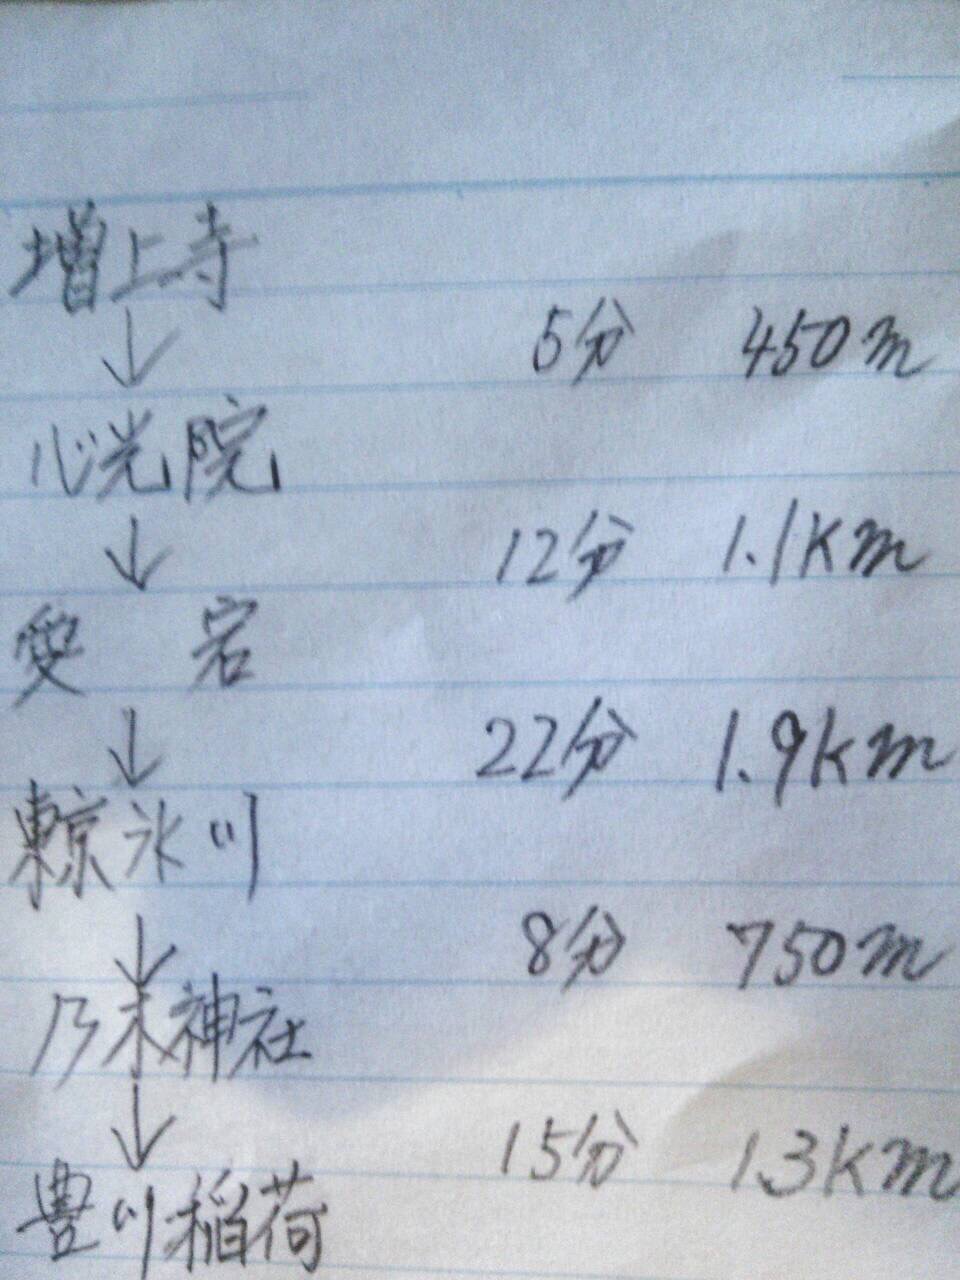 増上寺
↓ 5分 450m
心光院
↓ 12分 1.1km
愛宕
↓ 22分 1.9km
東京氷川
↓ 8分 750m
乃木神社
↓ 15分 1.3km
豊川稲荷